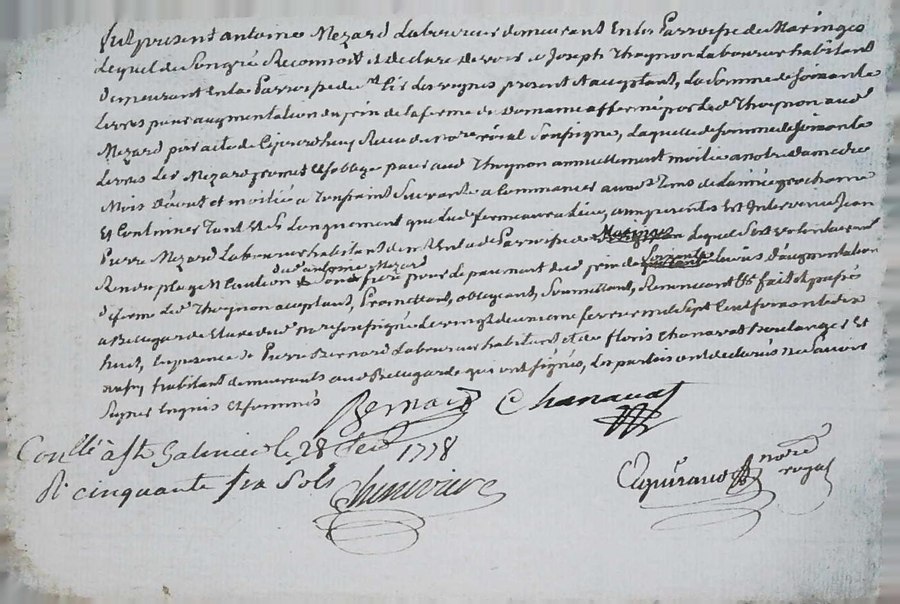 fut present antoine Mezard Laboureur demeurant En la Parroisse de Maringes
Lequel de Son gré Reconnoit et declare devoir a Joseph Thoynon Laboureur habitant
Demeurant En la Parroisse de present et acceptant, La Somme de Soixante
Livres pour augmentation du prix de la ferme de Domaine afferme par led Thoynon aud
Mezard par acte de Cejourdhuy Receu du no.re royal Soussigné, Laquelle de Somme de Soixante
Livres Led Mezard promet et soblige payer aud Thoynon annuellement moitié a notre dame de
Mois d'aout et moitié a Toussaint Suivante a Commancer aux dts Tems de L'année prochaine
Et Continuer Tant et Si Longuement que Lad ferme aura Lieu, aux presentes Est Intervenu Jean
Pierre Mezard Laboureur habitant demt En lad Parroisse de Maringes Lequel Sest volontairement
Rendu plege et Caution dud antoine Mezard Son frere pour le paiement dud prix de Soixante Livres d'augmentation
de ferme Led Thoynon acceptant, Promettant, obligeant, Soumettant, Renoncant &c fait et passé
a Bellegarde Etude du no.re Soussigné Le vingt deuxieme fevrier mil Sept Cent Soixante dix
huit, En presence de Pierre Bernard Laboureur habitant et de floris Chanavat Boulanger Et
habitant demeurants aud Bellegarde qui ont Signés, Les parties ont declarés ne Savoir
Signer Enquis et Sommés
Bernard Chanavat
Con.llé à St Galmier le 28 fev 1778
R. cinquante six Sols
no.re royal